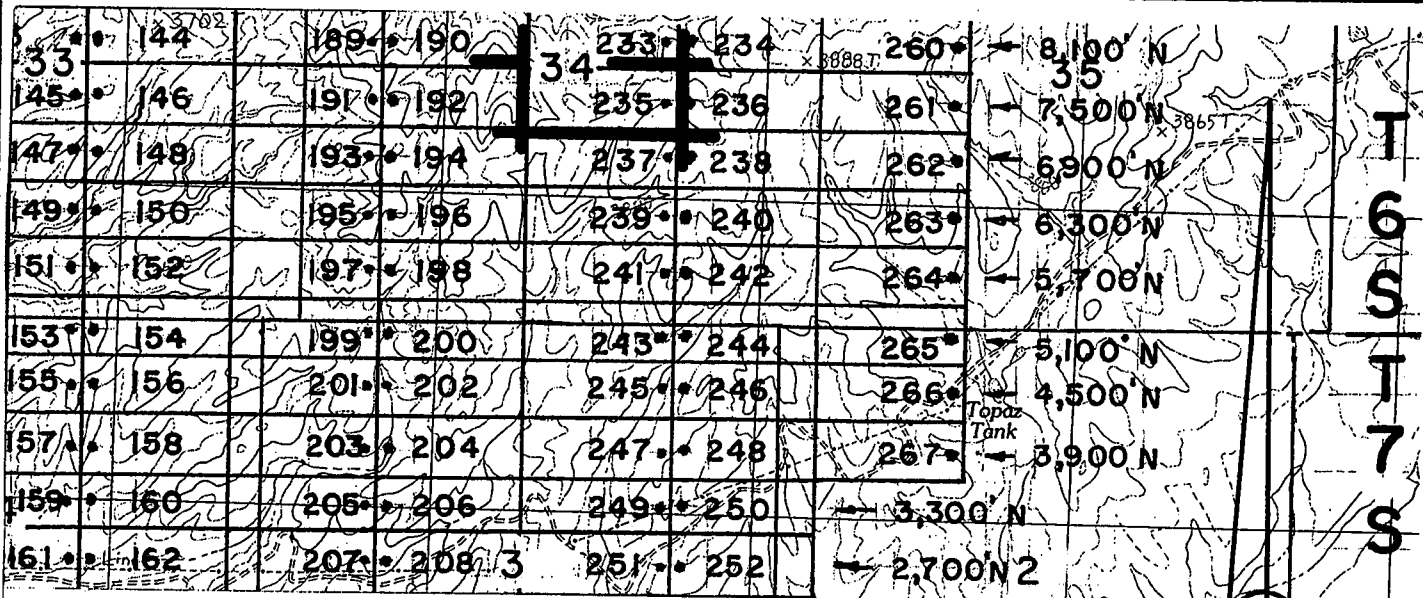 × 3702
144 189 190 233 234 260 8,100' N
33 34 × 3888 T 35
145 146 191 192 235 236 261 7,500' N
× 3865 T
147 148 193 194 237 238 262 6,900' N
149 150 195 196 239 240 263 6,300' N
151 152 197 198 241 242 264 5,700' N
153 154 199 200 243 244 265 5,100' N
155 156 201 202 245 246 266 4,500' N
Topaz
Tank
157 158 203 204 247 248 267 3,900' N
159 160 205 206 249 250 3,300' N
161 162 207 208 3 251 252 2,700' N 2
T
6
S
T
7
S